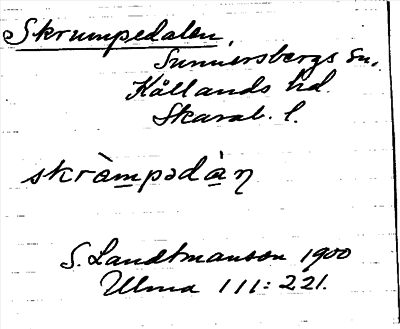 Skrumpedalen,
Sunnersbergs sn.
Kållands hd.
Skarab. l.
skràmpədàn
S. Landtmanson 1900
Ulma 111:221.